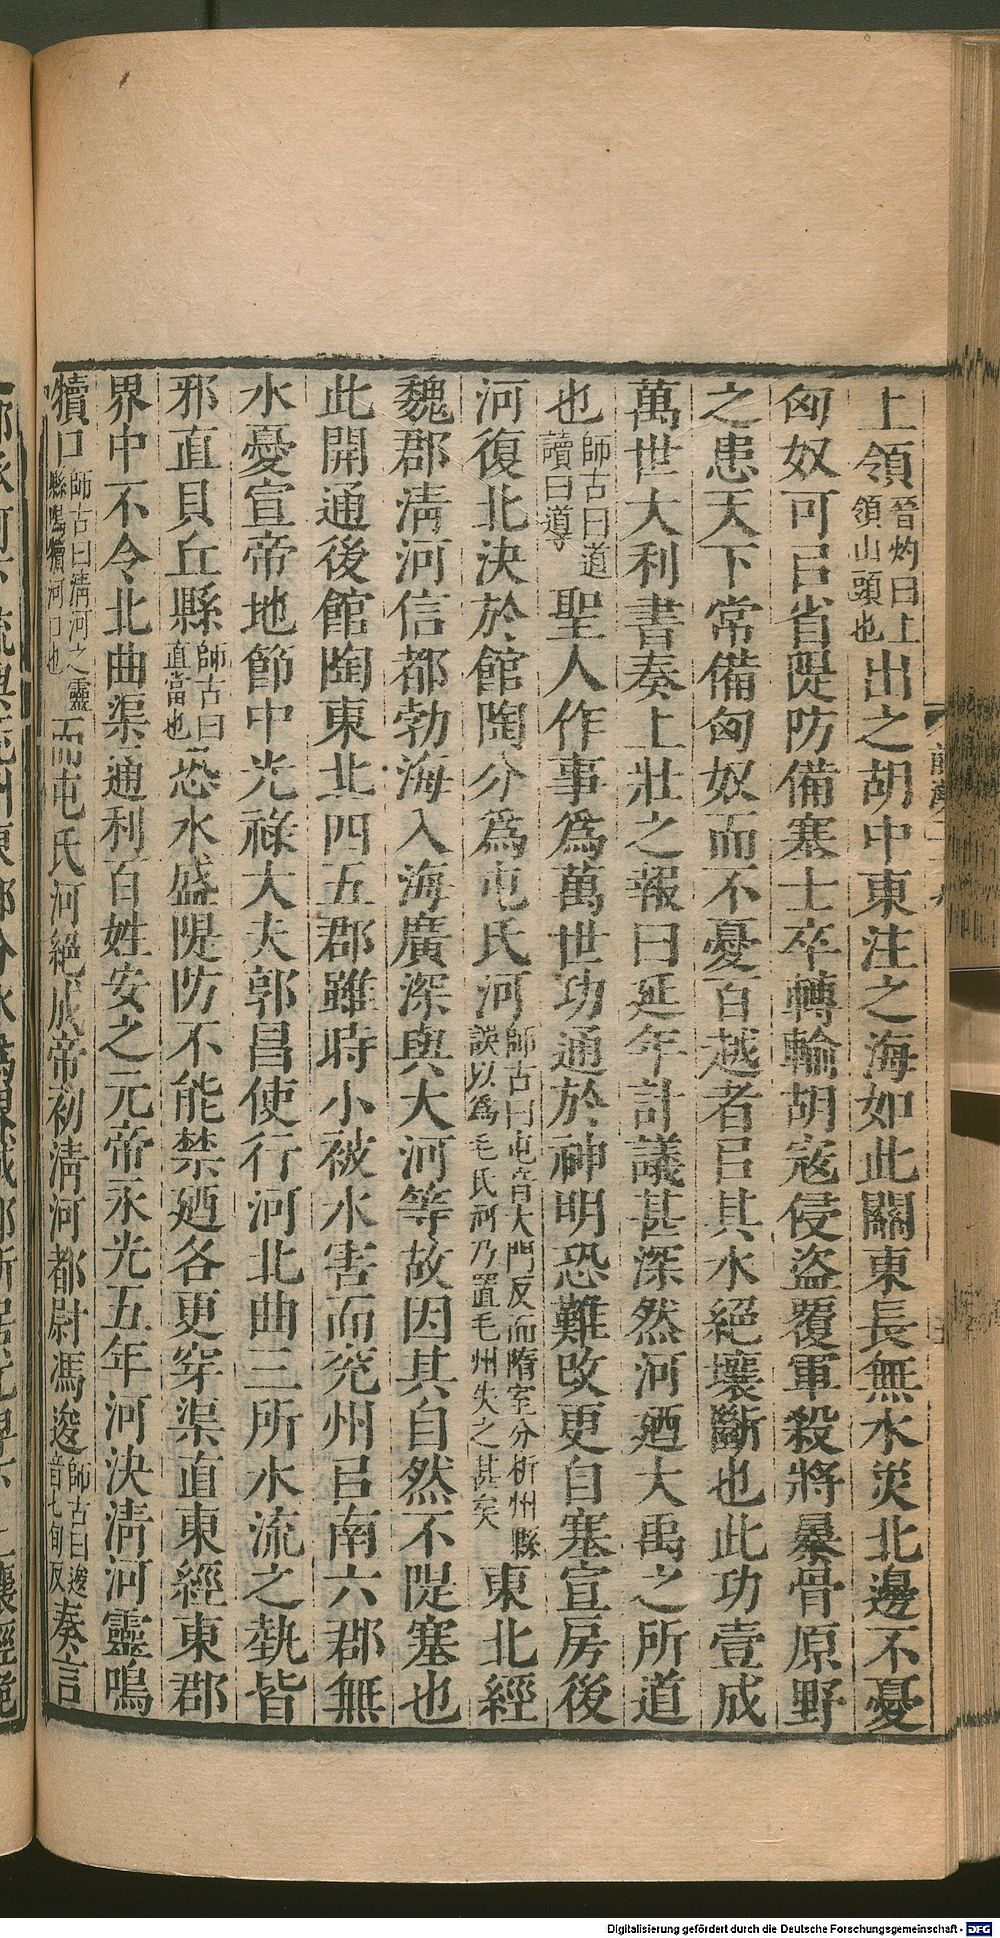 上領晉灼曰上領山頭也出之胡中東注之海如此關東長無水災北邊不憂
匈奴可㠯省隄防備塞士卒轉輸胡寇侵盜覆軍殺將暴骨原野
之患天下常備匈奴而不憂百越者㠯其水絕壤斷也此功壹成
萬世大利書奏上壯之報曰延年計議甚深然河廼大禹之所道
也師古曰道讀曰導聖人作事為萬世功通於神明恐難改更自塞宣房後
河復北決於館陶分為屯氏河師古曰屯音大門反而隋室分析州縣誤以為毛氏河乃置毛州失之甚矣東北經
魏郡清河信都勃海入海廣深與大河等故因其自然不隄塞也
此開通後館陶東北四五郡雖時小被水害而兗州㠯南六郡無
水憂宣帝地節中光祿大夫郭昌使行河北曲三所水流之埶皆
邪直貝丘縣師古曰直當也恐水盛隄防不能禁廼各更穿渠直東經東郡
界中不令北曲渠通利百姓安之元帝永光五年河決清河靈鳴
犢口師古曰清河之靈縣鳴犢河口也而屯氏河絕成帝初清河都尉馮逡師古曰逡音七旬反奏言
Digitalisierung gefördert durch die Deutsche Forschungsgemeinschaft - DFG